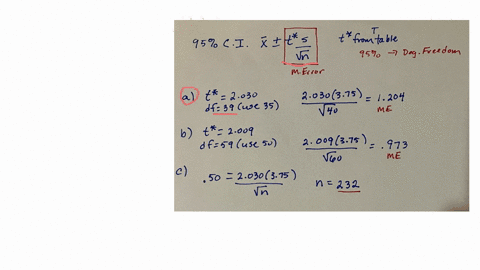 95% C.I. x̄ ± t* s / √n
t* from T table
95% → Deg. Freedom
M.Error
a) t* = 2.030
df = 39 (use 35)
2.030(3.75) / √40 = 1.204
ME
b) t* = 2.009
df = 59 (use 50)
2.009(3.75) / √60 = .973
ME
c) .50 = 2.030(3.75) / √n
n = 232